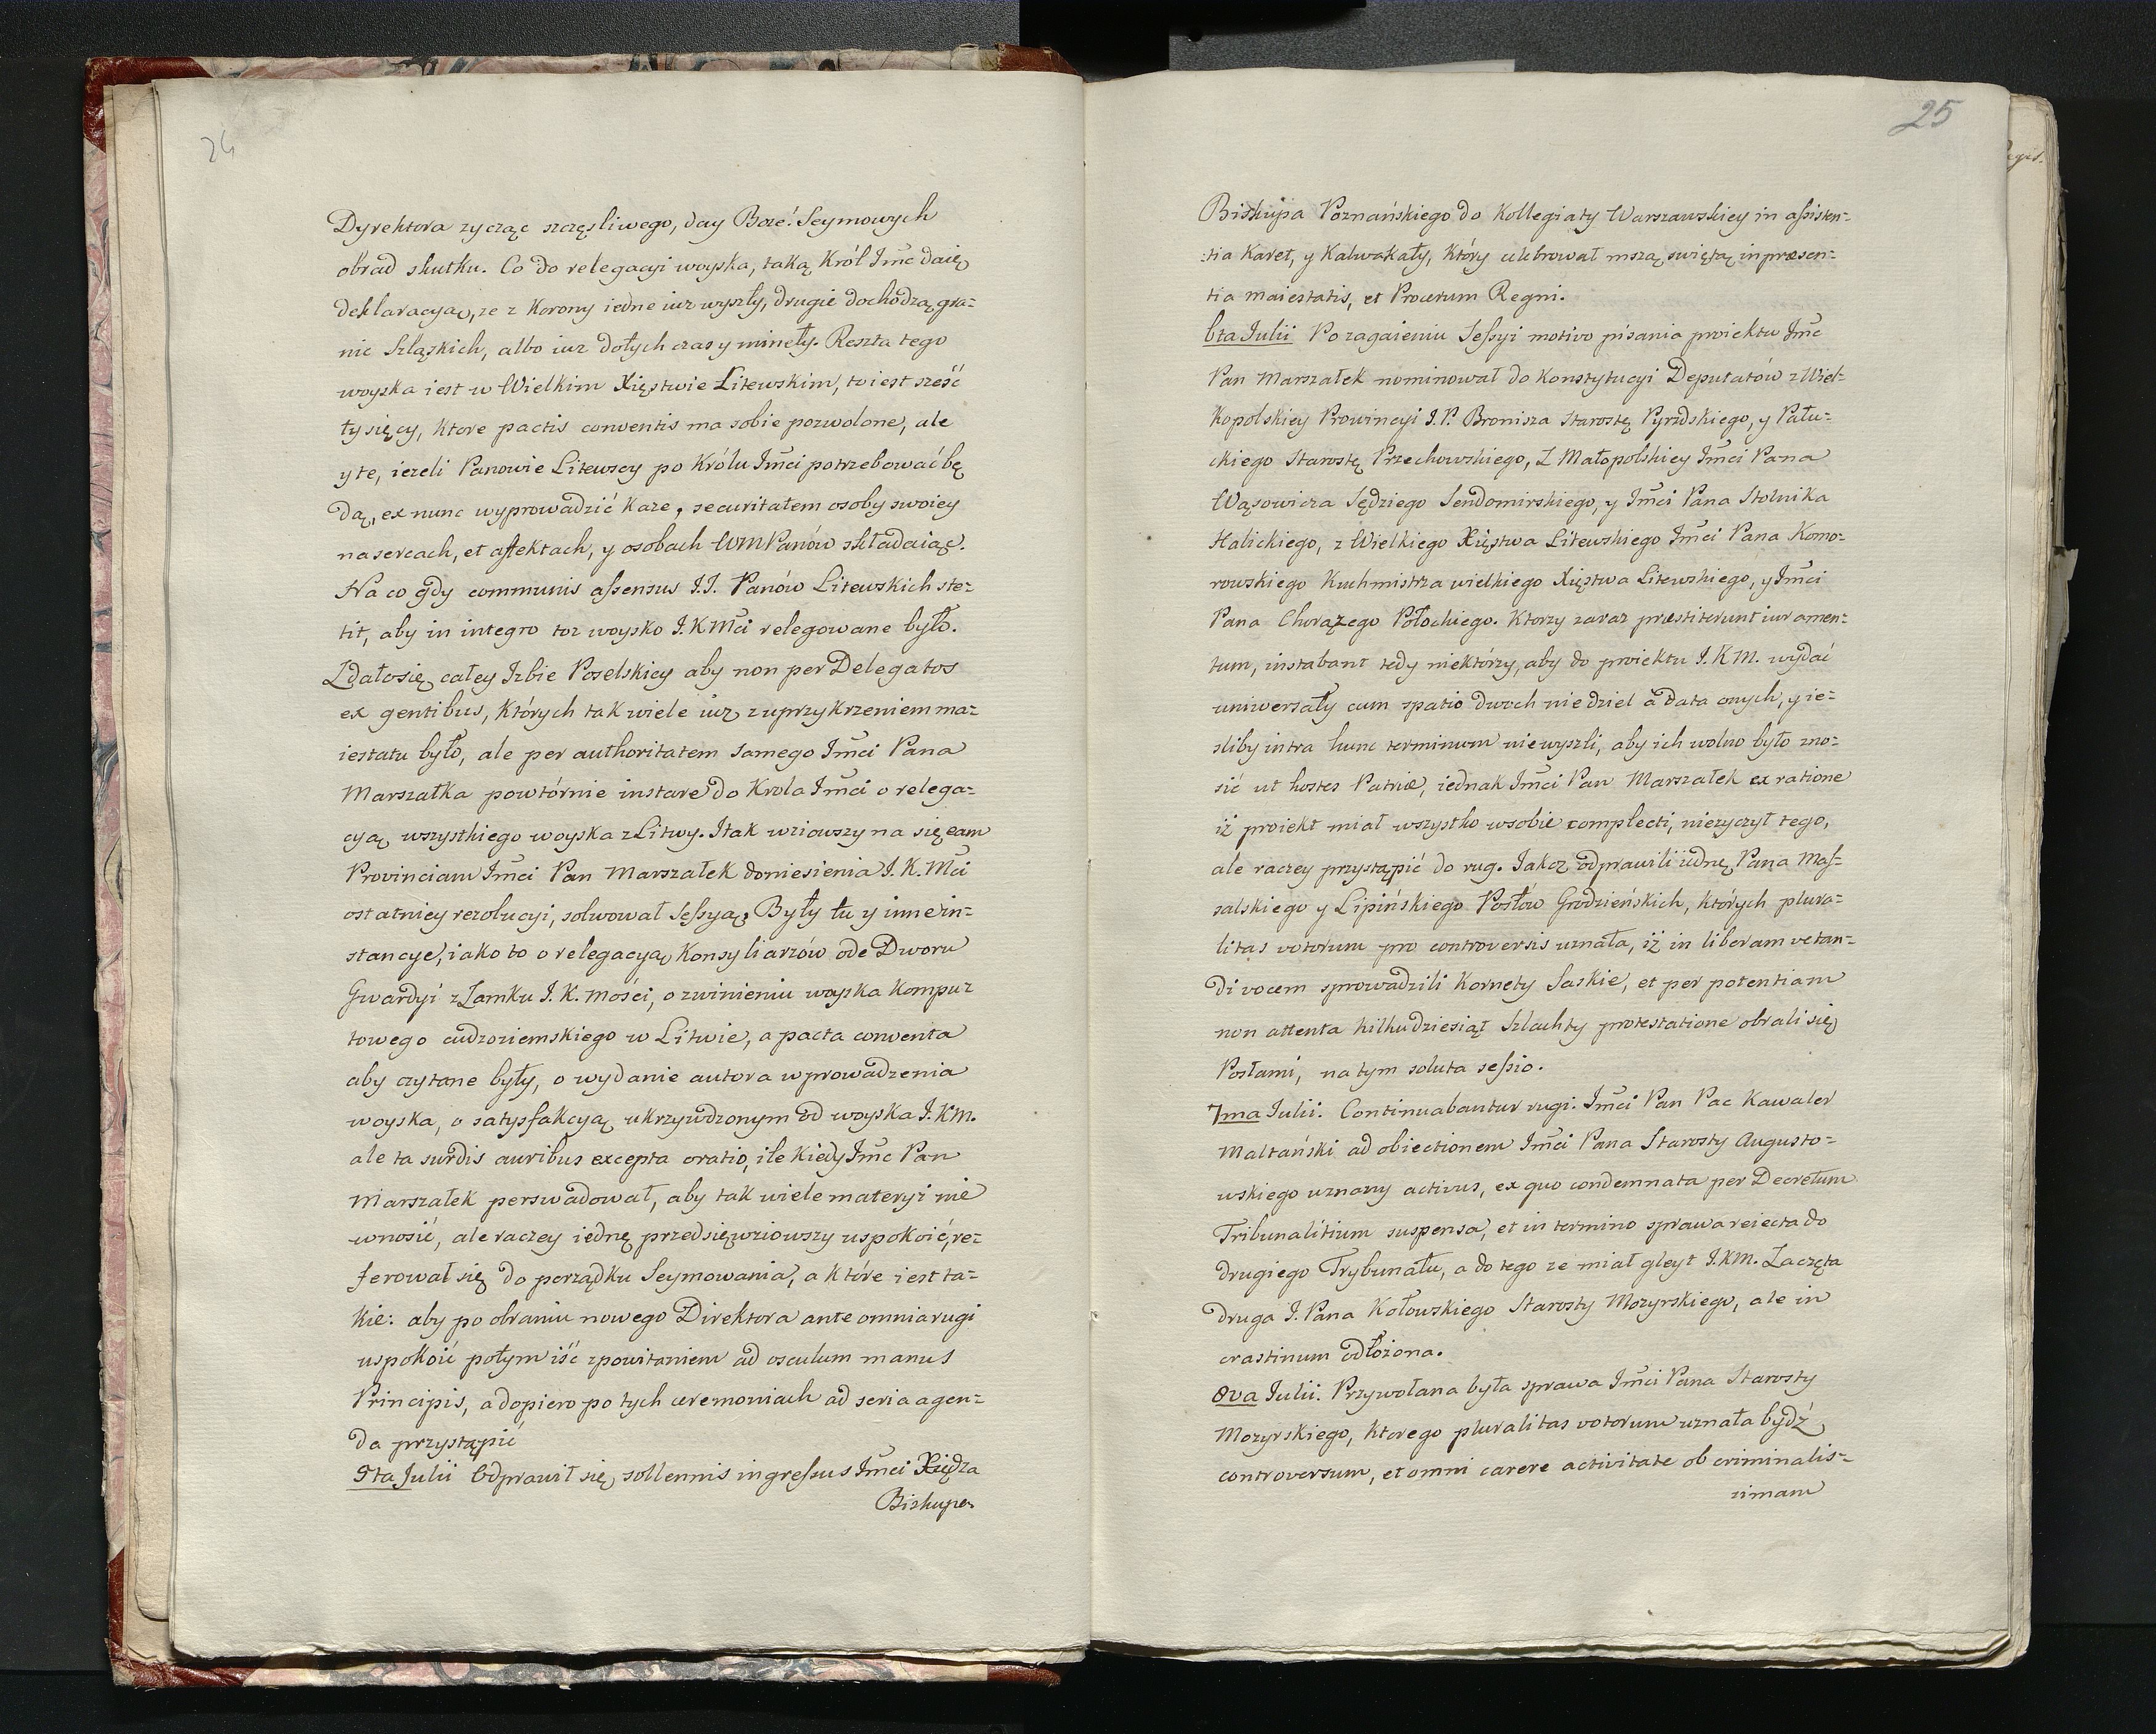 24
Dyrektora zycząc szczęsliwego, day Boze! Seymowych
obrad skutku. Co do relegacyi woyska, taką Król Jmć daię
deklaracyą, ze z Korony iedne iuz wyszły, drugie dochodzą gra=
nic Szląskich, albo iuz dotych czas y minęły. Reszta tego
woyska iest w Wielkim Xięstwie Litewskim, to iest sześć
tysięcy, ktore pactis conventis ma sobie pozwolone, ale
y te, iezeli Panowie Litewscy po Królu Jmci potrzebować bę
dą, ex nunc wyprowadzić kaze, securitatem osoby swoiey
na sercach, et affektach, y osobach WMPanów składaiąc.
Na co gdy communis assensus J.J. Panów Litewskich ste=
tit, aby in integro toz woysko J.KMci relegowane było.
Zdało się całey Izbie Poselskiey aby non per Delegatos
ex gentibus, których tak wiele iuz z uprzykrzeniem ma=
iestatu było, ale per authoritatem samego Jmci Pana
Marszałka powtórnie instare do Krola Jmci o relega=
cyą wszystkiego woyska z Litwy. Itak wziowszy na się eam
Provinciam Jmci Pan Marszałek doniesienia J.K.Mci
ostatniey rezolucyi, solwował Sessyą. Były tu y inne in=
stancye, iako to o relegacyą Konsyliarzów ode Dworu
Gwardyi z Zamku J.K.Mości, o zwinieniu woyska Kompu=
towego cudzoziemskiego w Litwie, a pacta conventa
aby czytane były, o wydanie autora wprowadzenia
woyska, o satysfakcyą ukrzywdzonym od woyska J.KM.
ale ta surdis auribus excepta oratio, ile kiedy Jmć Pan
Marszałek perswadował, aby tak wiele materyi nie
wnosić, ale raczey iednę przedsięwziowszy uspokoić, re=
ferował się do porządku Seymowania, a które iest ta=
kie: aby po obraniu nowego Direktora ante omnia rugi
uspokoić potym iść z powitaniem ad osculum manus
Principis, a dopiero po tych ceremoniach ad seria agen=
da przystąpić
5ta Julii Odprawił się sollennis ingressus Jmci Xiędza
Biskupa
25
Biskupa Poznańskiego do Kollegiaty Warszawskiey in assisten=
=tia Karet, y Kalwakaty, Który celebrował mszą swiętą in præsen=
tia maiestatis, et Procerum Regni.
6ta Julii Po zagaieniu Sessyi motivo pisania proiektu Jmć
Pan Marszałek nominował do Konstytucyi Deputatów z Wiel=
kopolskiey Prowincyi J.P. Bronisza Starostę Pyrzdskiego, y Pału=
ckiego Starostę Przechowskiego, Z Małopolskiey Jmci Pana
Wąsowicza Sędziego Sendomirskiego, y Jmci Pana Stolnika
Halickiego, z Wielkiego Xięstwa Litewskiego Jmci Pana Komo=
rowskiego Kuchmistrza wielkiego Xięstwa Litewskiego, y Jmci
Pana Chorązego Połockiego. Ktorzy zaraz præstiterunt iuramen=
tum, instabant tedy niektórzy, aby do proiektu J.KM. wydać
uniwersały cum spatio dwoch niedziel à data onych, y ie=
sliby intra hunc terminum niewyszli, aby ich wolno było zno=
sić ut hostes Patriæ, iednak Jmci Pan Marszałek ex ratione
iż proiekt miał wszystko wsobie complecti, nieżyczył tego,
ale raczey przystąpić do rug. Jakoz odprawili iednę Pana Mas=
salskiego y Lipińskiego Posłów Grodzieńskich, których plura=
litas votorum pro controversis uznała, iż in liberam vetan=
di vocem sprowadzili Kornety Saskie, et per potentiam
non attenta kilkudziesiąt Szlachty protestatione obrali się
Posłami, na tym soluta sessio.
7ma Julii. Continuabantur rugi. Jmci Pan Pac Kawaler
Maltański ad obiectionem Jmci Pana Starosty Augusto=
wskiego uznany activus, ex quo condemnata per Decretum
Tribunalitium suspensa, et in termino sprawa reiecta do
drugiego Trybunału, a do tego ze miał gleyt J.KM. Zaczęta
druga J.Pana Kołowskiego Starosty Mozyrskiego, ale in
crastinum odłożona.
8va Julii. Przywołana była sprawa Jmci Pana Starosty
Mozyrskiego, ktorego pluralitas votorum uznała bydź
controversum, et omni carere activitate ob criminalis=
simam